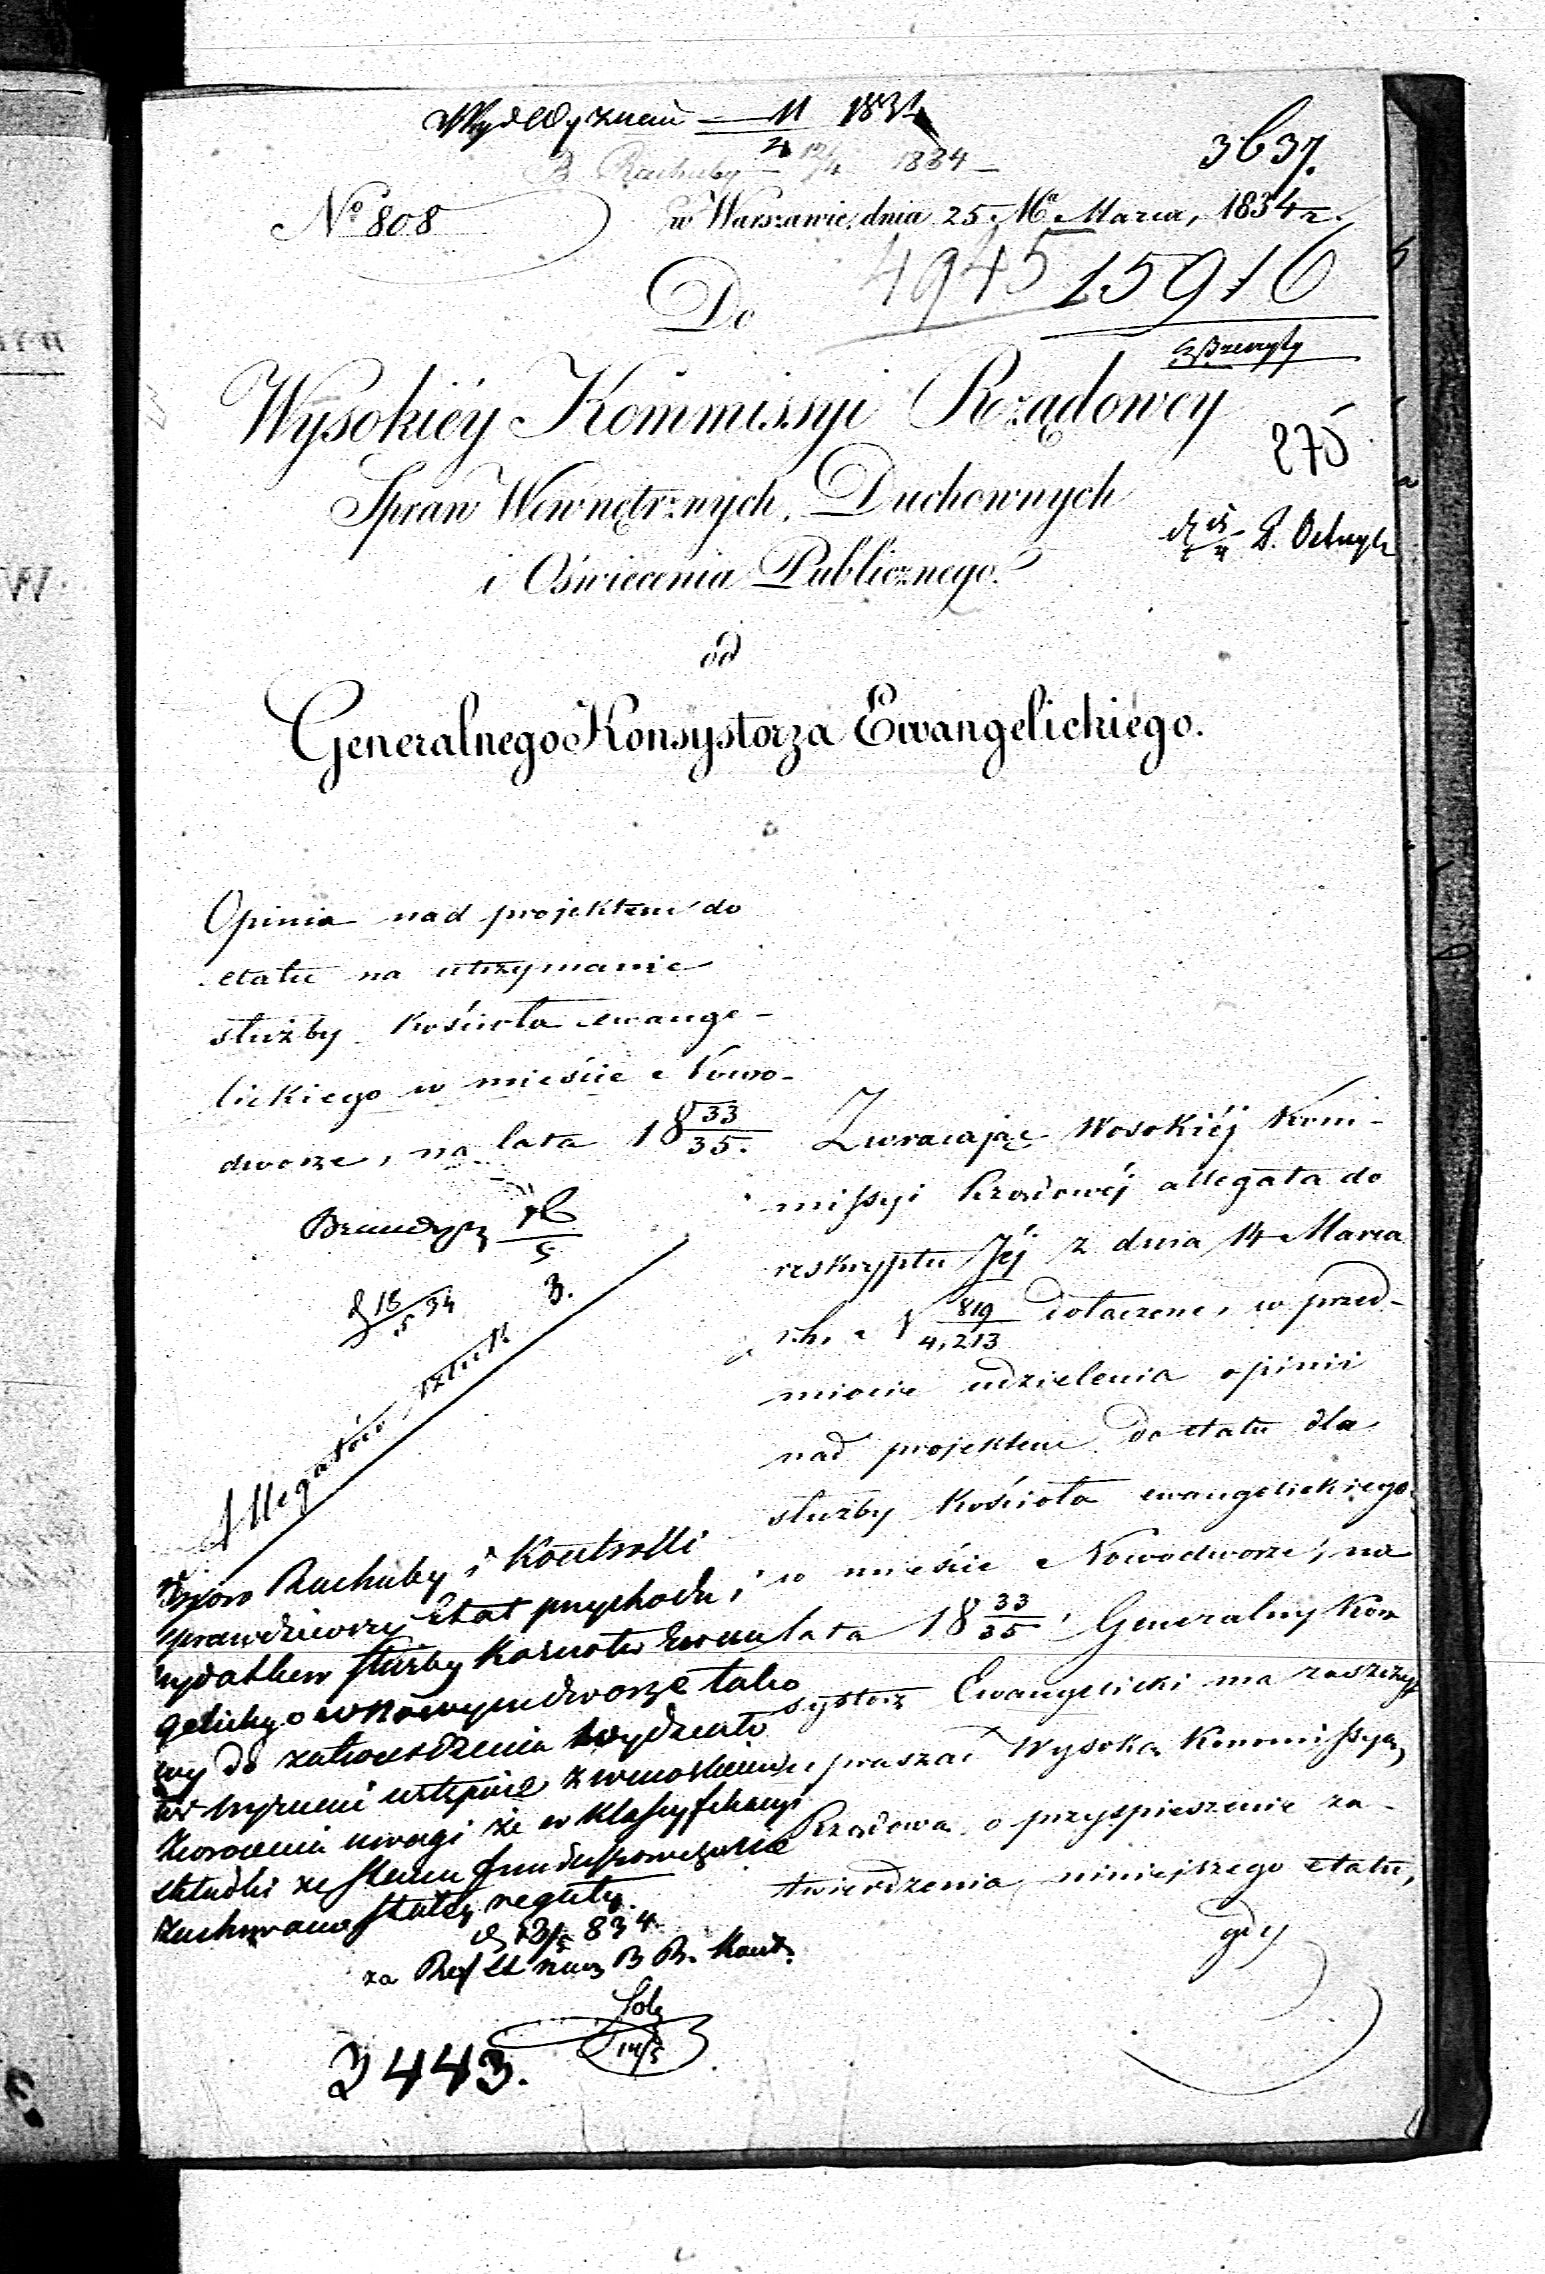 1834
B. Rachuby 12/4 1834
3637.
No 808
w Warszawie, dnia 25 Mca Marca, 1834 r.
4945 15916
Do
Wysokiéy Kommissyi Rządowey
Spraw Wewnętrznych, Duchownych
i Oświecenia Publicznego.
275
od
Generalnego Konsystorza Ewangelickiégo.
Opinia nad projektem do
etatu na utrzymanie
służby Kościoła ewange-
lickiego w mieście Nowo-
dworze, na lata 18 33/35.
Allegatów sztuk 3.
Zwracając Wosokiéj Kom-
missyi Rządowéj allegata do
reskryptu Jéj z dnia 14 Marca
r.b. N 819/4,213 dołączone, w przed-
miocie udzielenia opinii
nad projektem do etatu dla
służby Kościoła ewangelickiego
w mieście Nowodworze, na
lata 18 33/35, Generalny Kon
systorz Ewangelicki ma zaszczyt
upraszać Wysoką Kommissyą
Rządową o przyspieszenie za-
twierdzenia niniejszego etatu,
gdy
Biuro Rachuby i Kontrolli
sprawdziwszy Etat przychodu i
wydatków służby Kościoła Ewan
gelickiego w Nowymdworze tako
wy do zatwierdzenia Wydziało
wi Wyznań
zwrócenia uwagi że w klassyfikacyi
składki
zachowano stałą regułę.
13/5 834
3443.
14/5